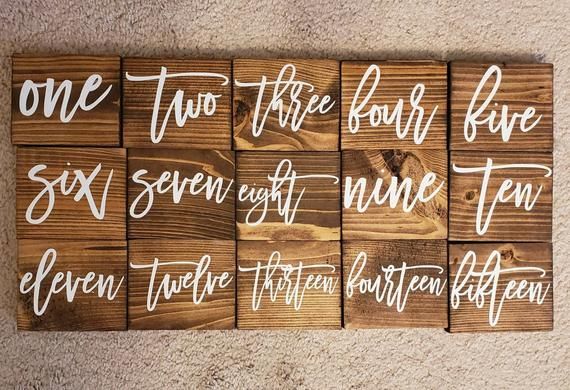 one two three four five
six seven eight nine ten
eleven twelve thirteen fourteen fifteen